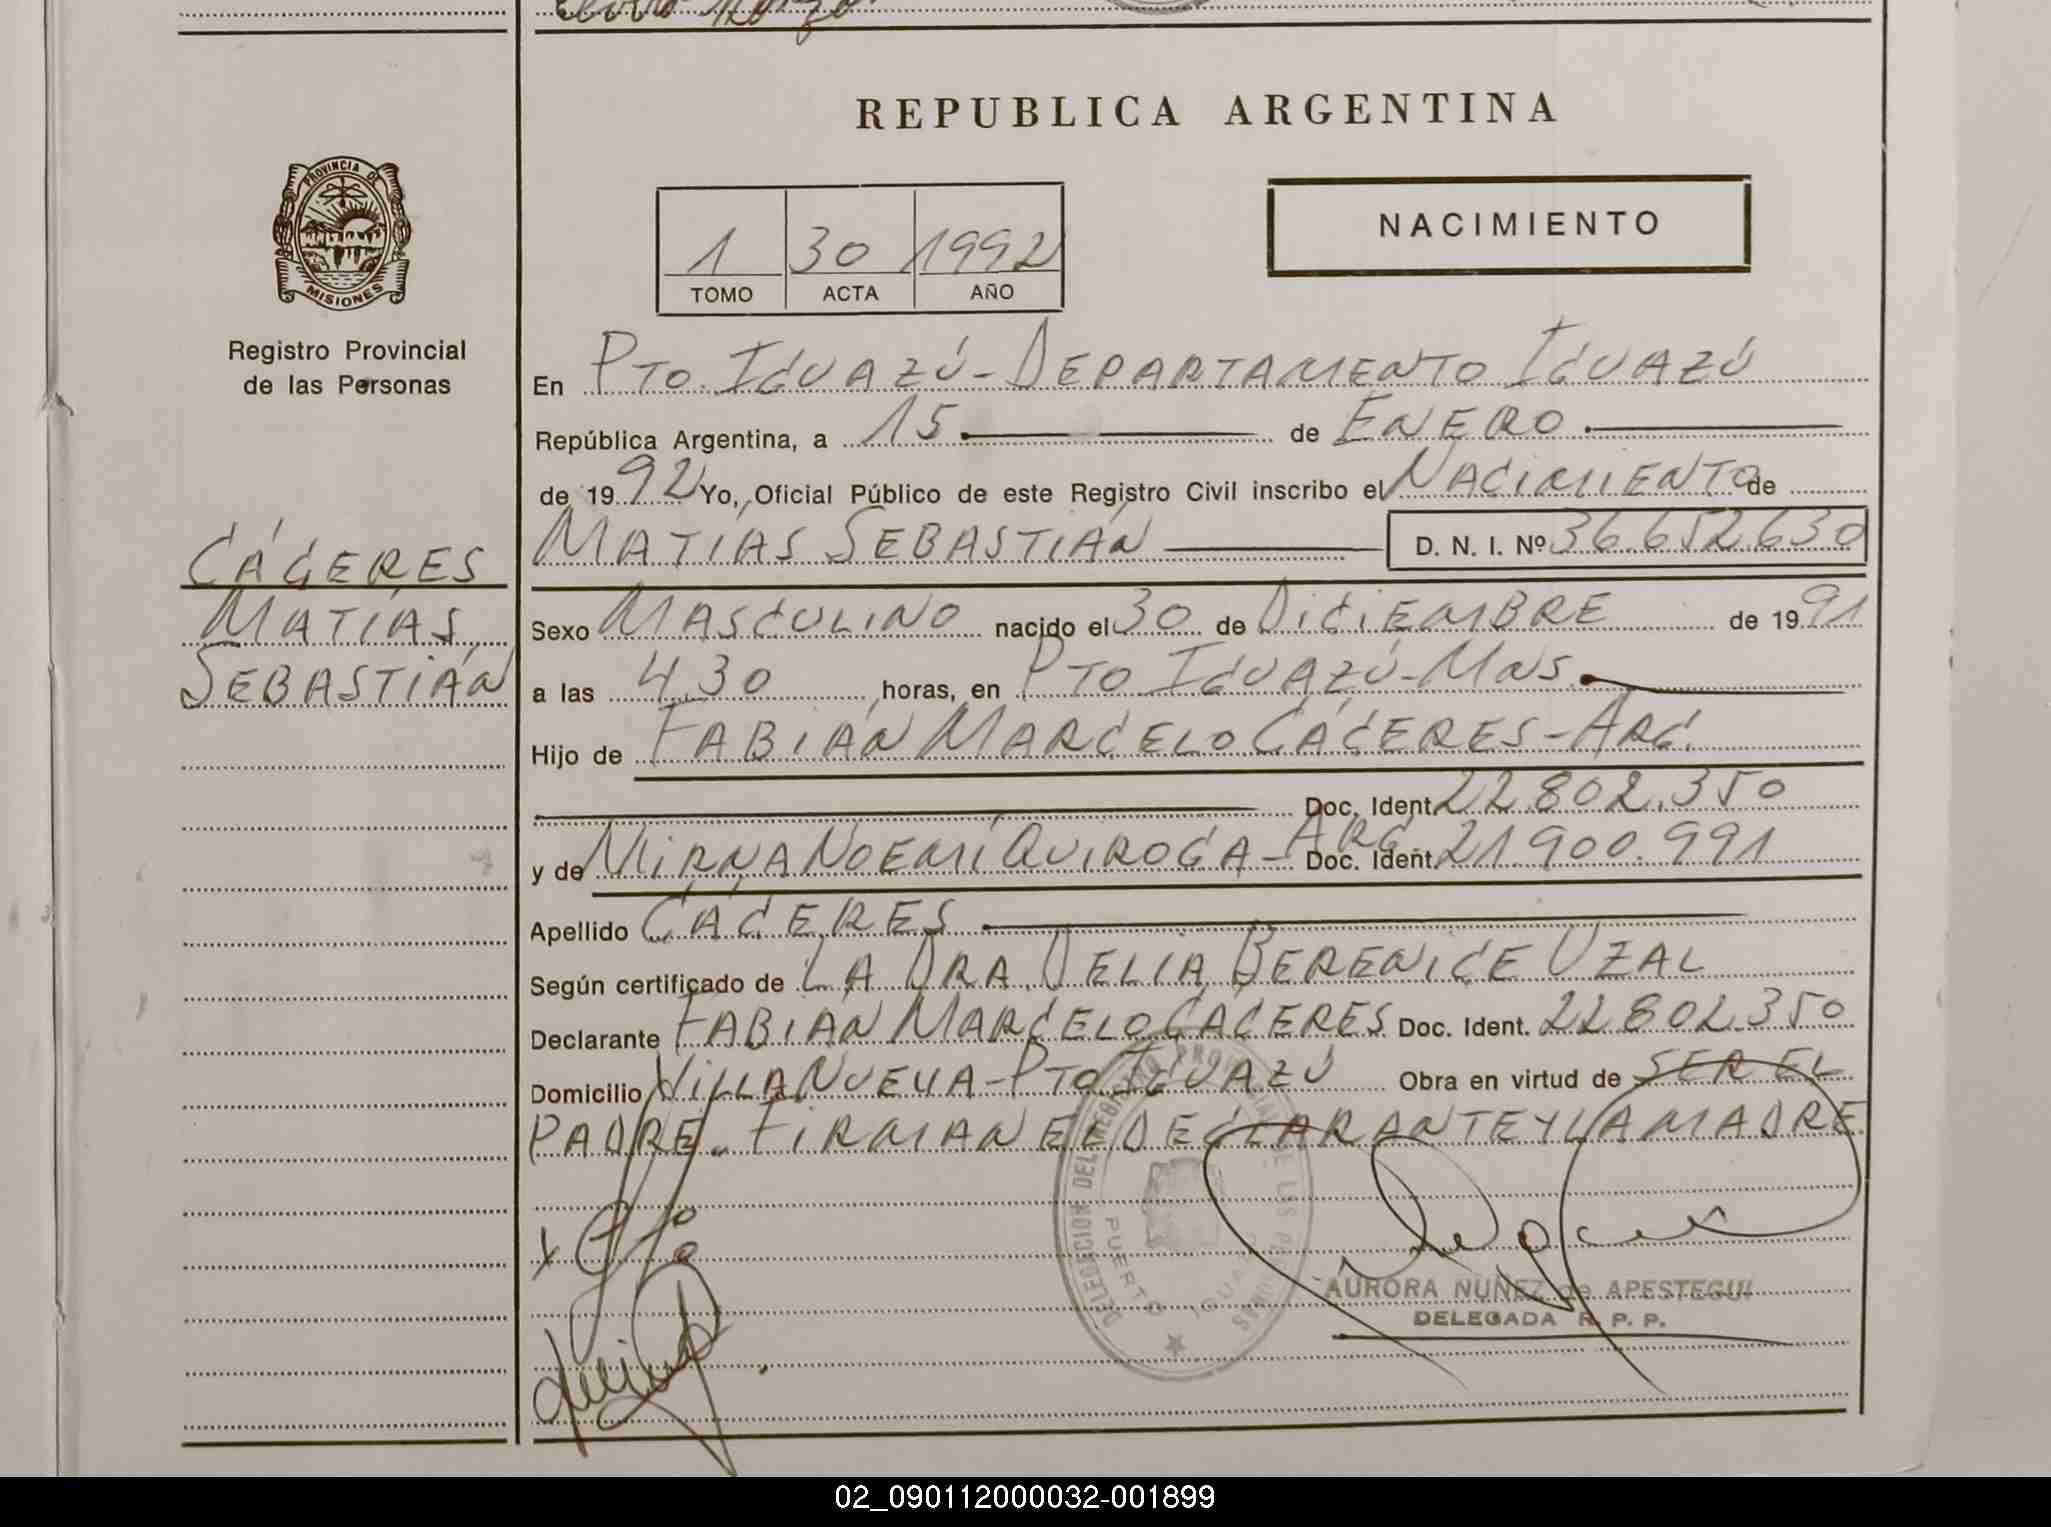 REPUBLICA ARGENTINA
PROVINCIA DE
MISIONES
Registro Provincial
de las Personas
NACIMIENTO
1 30 1992
TOMO ACTA AÑO
En PTO. IGUAZÚ - DEPARTAMENTO IGUAZÚ
República Argentina, a 15 de ENERO
de 1992 Yo, Oficial Público de este Registro Civil inscribo el NACIMIENTO de
CÁCERES
MATÍAS
SEBASTIÁN
MATÍAS SEBASTIÁN D. N. I. Nº 36.652.630
Sexo MASCULINO nacido el 30 de DICIEMBRE de 1991
a las 4,30 horas, en PTO IGUAZÚ - MNS.
Hijo de FABIÁN MARCELO CÁCERES - ARG.
Doc. Ident. 22.802.350
y de MIRNA NOEMÍ QUIROGA - ARG. Doc. Ident. 21.900.991
Apellido CÁCERES
Según certificado de LA DRA. DELIA BERENICE UZAL
Declarante FABIÁN MARCELO CÁCERES Doc. Ident. 22.802.350
Domicilio VILLA NUEVA - PTO IGUAZÚ Obra en virtud de SER EL
PADRE. FIRMAN EL DECLARANTE Y LA MADRE.
DELEGACION DEL REGISTRO PROVINCIAL DE LAS PERSONAS
PUERTO IGUAZU
AURORA NUÑEZ de APESTEGUI
DELEGADA R. P. P.
02_090112000032-001899